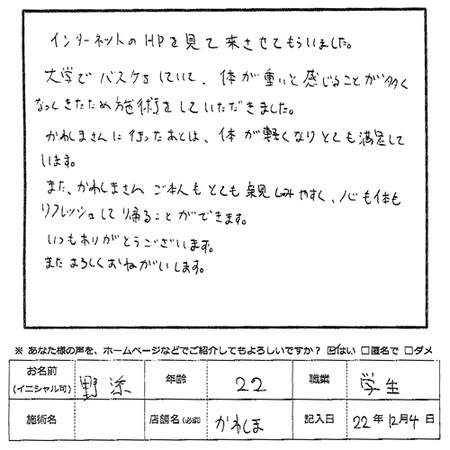 インターネットのHPを見て来させてもらいました。
大学でバスケをしていて、体が重いと感じることが多く
なってきたため施術をしていただきました。
かわしまさんに行ったあとは、体が軽くなりとても満足して
います。
また、かわしまさんご本人もとても親しみやすく、心も体も
リフレッシュして帰ることができます。
いつもありがとうございます。
またよろしくおねがいします。
※ あなた様の声を、ホームページなどでご紹介してもよろしいですか？ ☑はい □匿名で □ダメ
お名前 (イニシャル可) 野添 年齢 22 職業 学生
施術名 店舗名 (必須) かわしま 記入日 22年12月4日